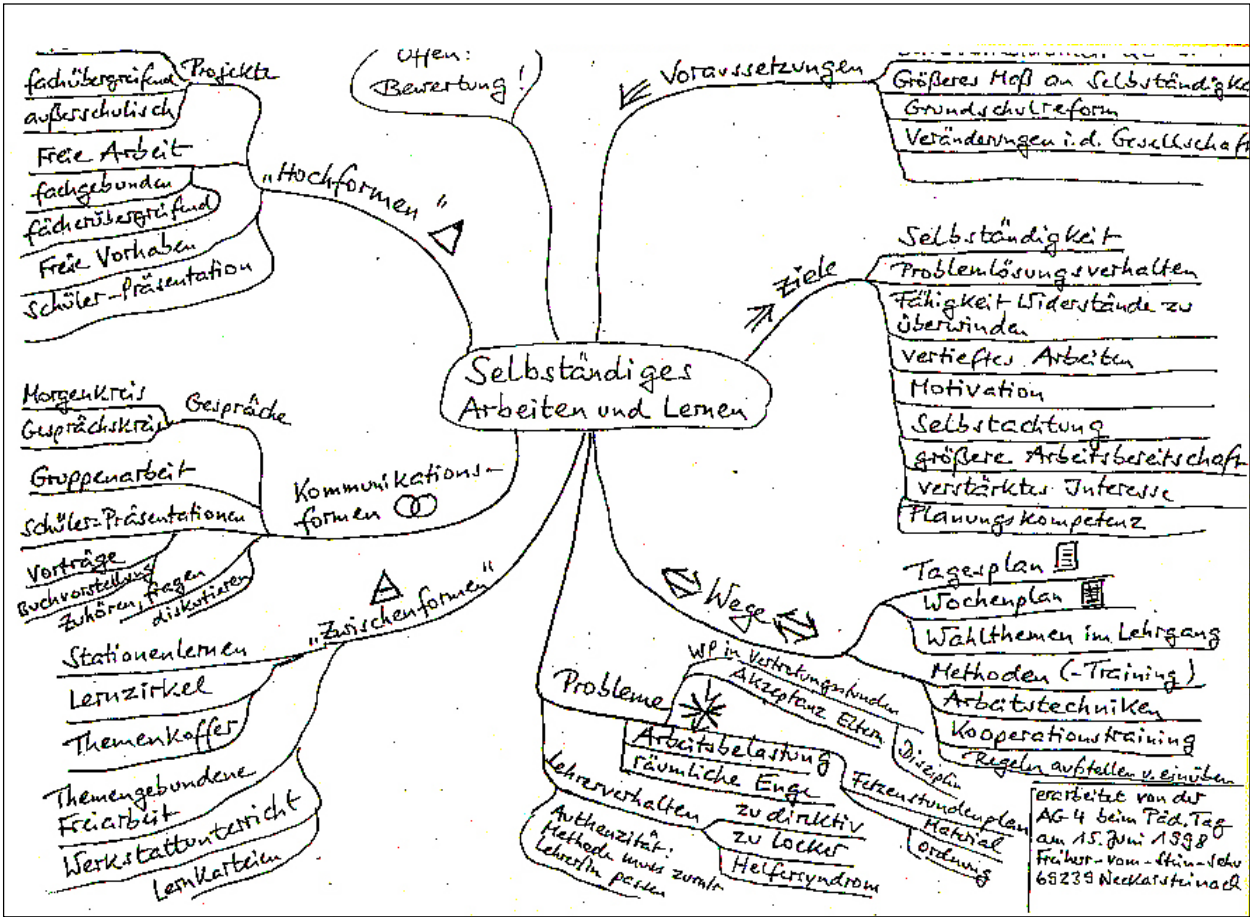 Selbständiges
Arbeiten und Lernen
Offen:
Bewertung!
Voraussetzungen
Größeres Maß an Selbständigke
Grundschulreform
Veränderungen i.d. Gesellschaft
Ziele
Selbständigkeit
Problemlösungsverhalten
Fähigkeit Widerstände zu
überwinden
vertieftes Arbeiten
Motivation
Selbstachtung
größere Arbeitsbereitschaft
verstärktes Interesse
Planungskompetenz
Wege
Tagesplan
Wochenplan
Wahlthemen im Lehrgang
Methoden (-Training)
Arbeitstechniken
Kooperationstraining
Regeln aufstellen u. einüben
Probleme
WP in Vertretungsstunden
Akzeptanz Eltern
Disziplin
Arbeitsbelastung
räumliche Enge
Fetzenstundenplan
Material
Ordnung
Lehrerverhalten
zu direktiv
zu locker
Helfersyndrom
Authenzität:
Methode muss zum/r
Lehrer/in passen
„Zwischenformen"
Stationenlernen
Lernzirkel
Themenkoffer
Themengebundene
Freiarbeit
Werkstattunterricht
Lernkarteien
Kommunikations-
formen
Gespräche
Morgenkreis
Gesprächskreis
Gruppenarbeit
Schüler-Präsentationen
Vorträge
Buchvorstellung
Zuhören, fragen
diskutieren
„Hochformen"
Projekte
fachübergreifend
außerschulisch
Freie Arbeit
fachgebunden
fächerübergreifend
Freie Vorhaben
Schüler-Präsentation
erarbeitet von der
AG 4 beim Päd. Tag
am 15. Juni 1998
Freiherr-vom-Stein-Schu
69239 Neckarsteinach